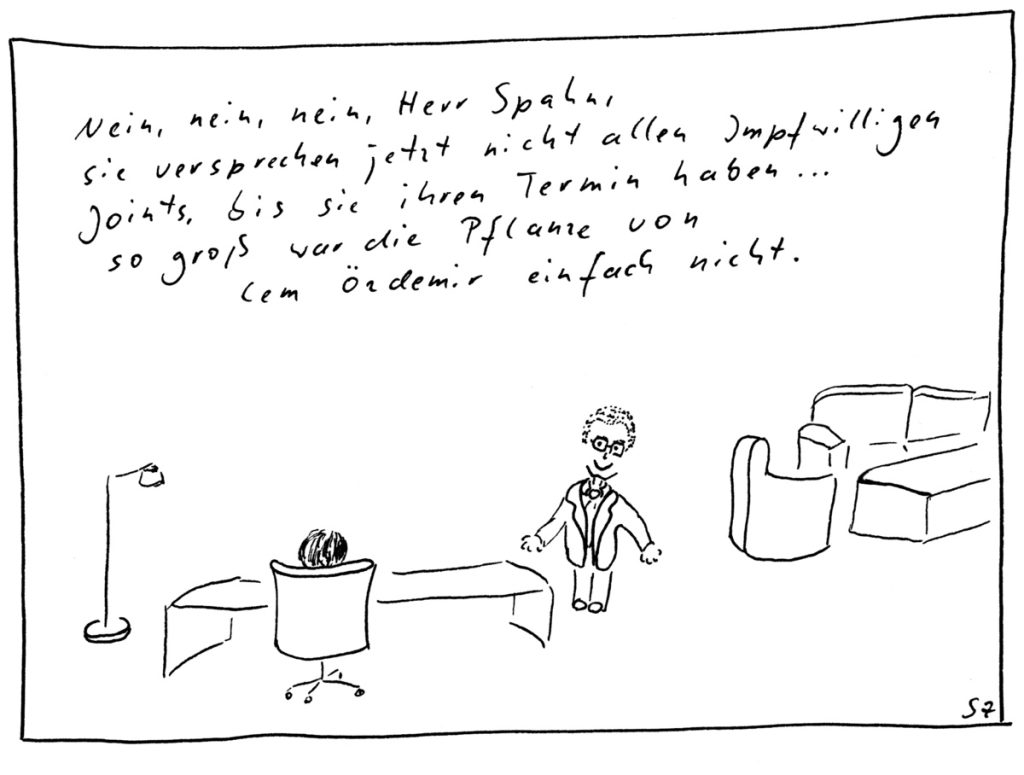 Nein, nein, nein, Herr Spahn,
sie versprechen jetzt nicht allen Impfwilligen
Joints, bis sie ihren Termin haben...
so groß war die Pflanze von
Cem Özdemir einfach nicht.
SZ